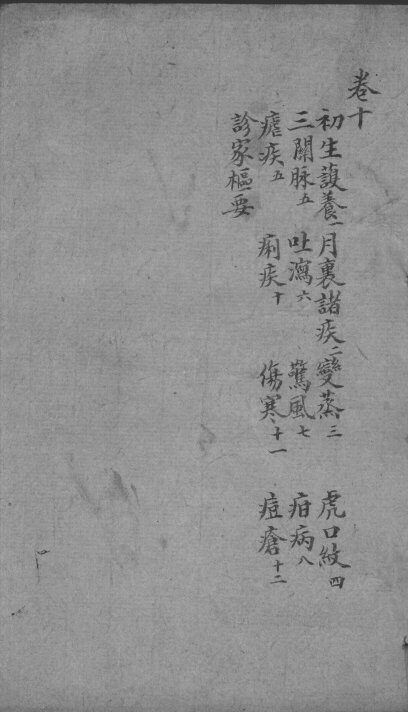 卷十
初生護養一 月裏諸疾二 變蒸三 虎口紋四
三關脉五 吐瀉六 驚風七 疳病八
瘧疾五 痢疾十 傷寒十一 痘瘡十二
診家樞要